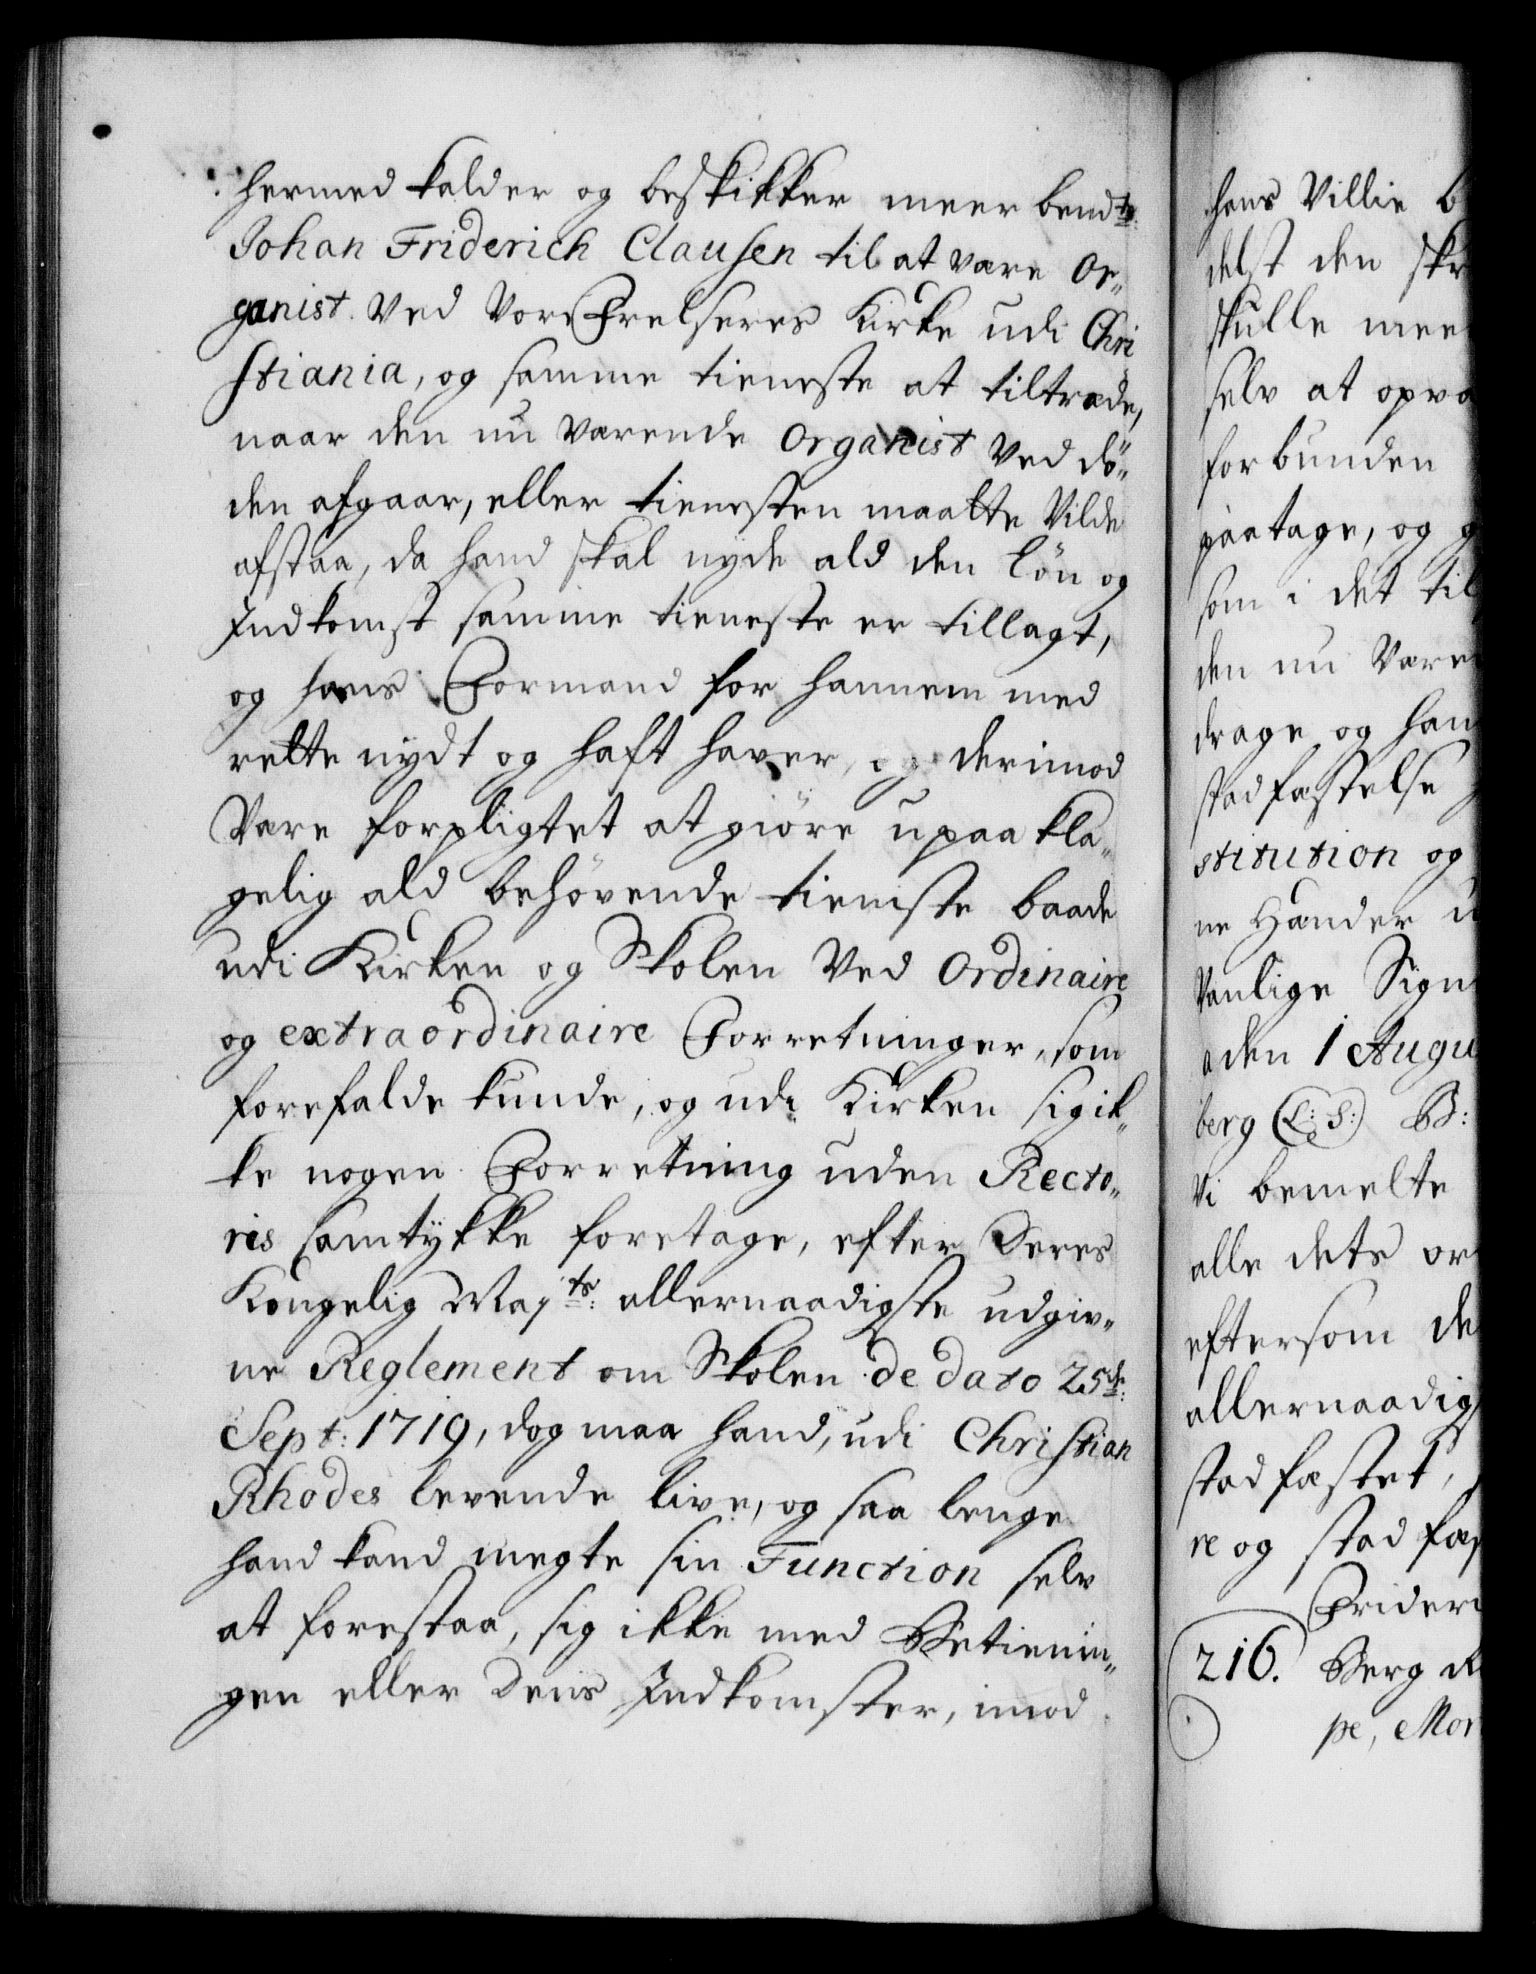 hermed kalder og beskikker meer bemd.te
Johan Friderich Clausen til at være Or„
ganist ved Vor Frelseres Kirke udi Chri
stiania, og samme tieneste at tiltræde,
naar den nu værende Organist ved dö„
den afgaar, eller tienesten maatte vilde
afstaa, da hand skal nyde ald den lön og
Indkomst samme tieneste er tillagt,
og hans Formand for hannem med
rette nydt og haft haver, og derimod
være forpligtet at giöre upaa kla„
gelig ald behövende tieneste baade
udi Kirken og Skolen ved Ordinaire
og extraordinaire Forretninger, som
forefalde kunde, og udi Kirken sig ik„
ke nogen Forretning uden Recto„
ris samtykke foretage, efter Deres
Kongelig May.ts allernaadigste udgiv„
ne Reglement om Skolen de dato 25de
Sept: 1719, dog maa hand, udi Christian
Rhodes levende live, og saa lenge
hand kand megte sin Function selv
at forestaa, sig ikke med Betienin„
gen eller dens Indkomster, imod
hans Villie b
delst den skr
skulle mee
selv at opva
forbunden
paatage, og g
som i det til
den nu være
drage og han
stadfæstelse
stitution og
ne Hænder u
vanlige Sign
den 1 Augu
berg (L: S:) B:
Vi bemelte
alle dets or
eftersom de
allernaadig
stadfæstet,
re og stadfæ
Frideri
216. Berg R
pe, Mor